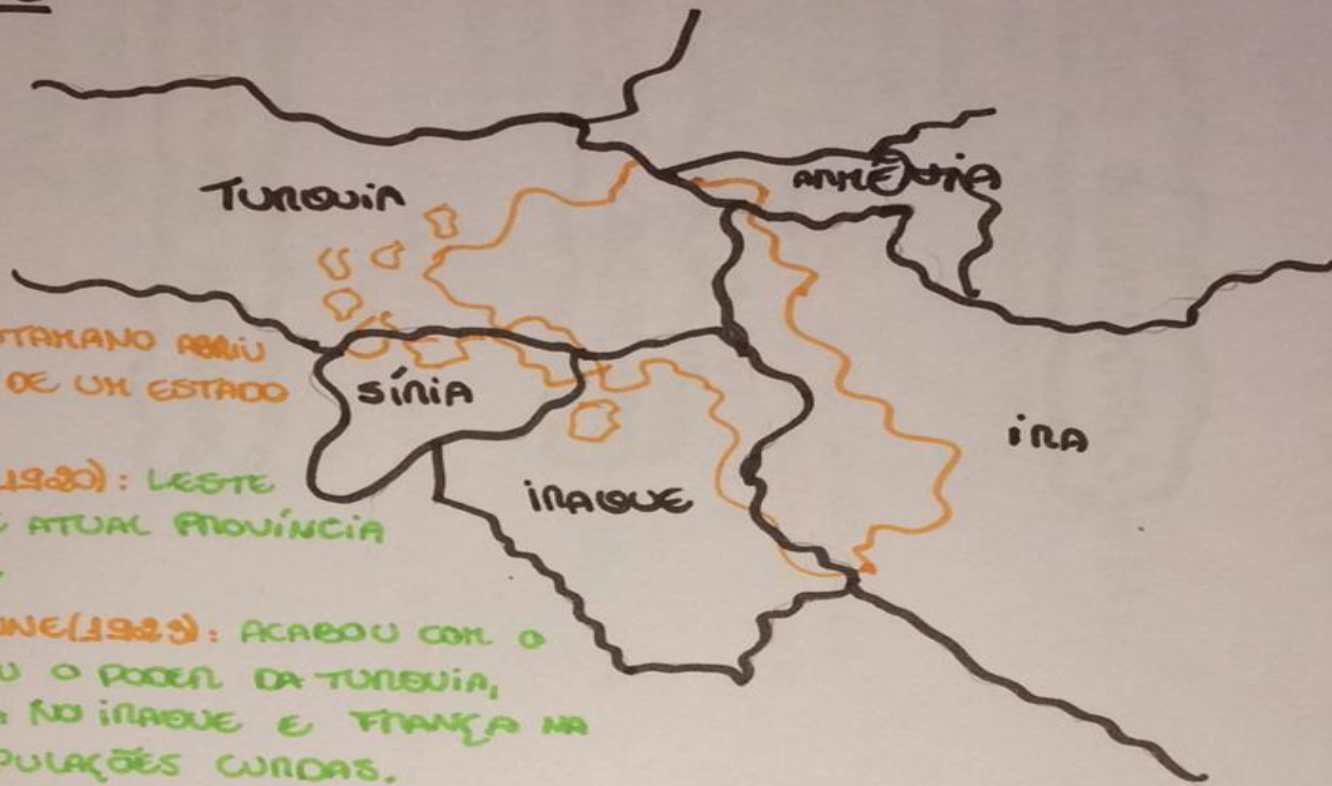 TURQUIA
ARMÊNIA
SÍRIA
IRAQUE
IRA
TAMANO ABRIU
DE UM ESTADO
1920): LESTE
E ATUAL PROVÍNCIA
NE(1923): ACABOU COM O
U O PODER DA TURQUIA,
NO IRAQUE E FRANÇA NA
PULAÇÕES CURDAS.